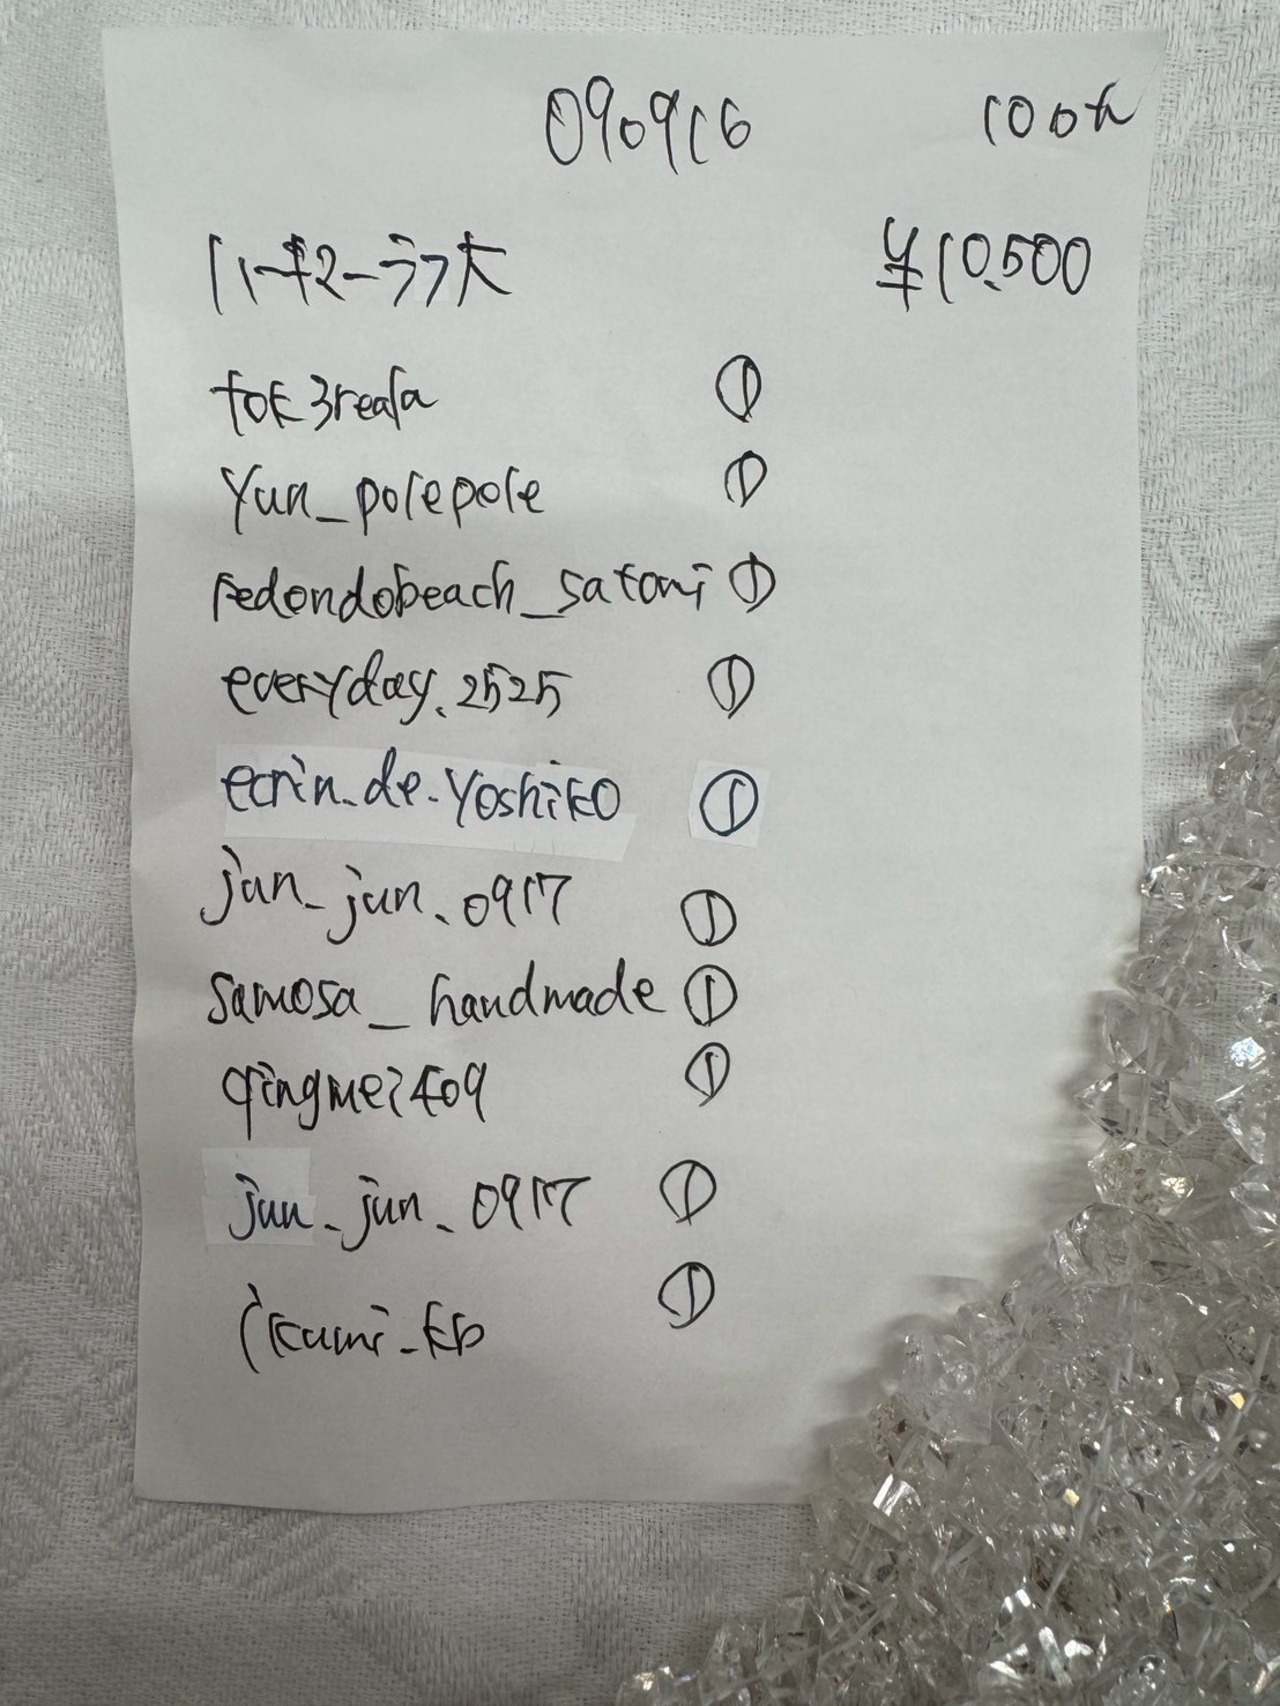 090916 100本
ハーキマーラフ大 ¥10.500
tok3reala ①
yun_polepole ①
redondobeach_satomi ①
everyday.2525 ①
ecrin.de.yoshiko ①
jun_jun.0917 ①
samosa_handmade ①
qingmei409 ①
jun_jun.0917 ①
ikumi_kb ①